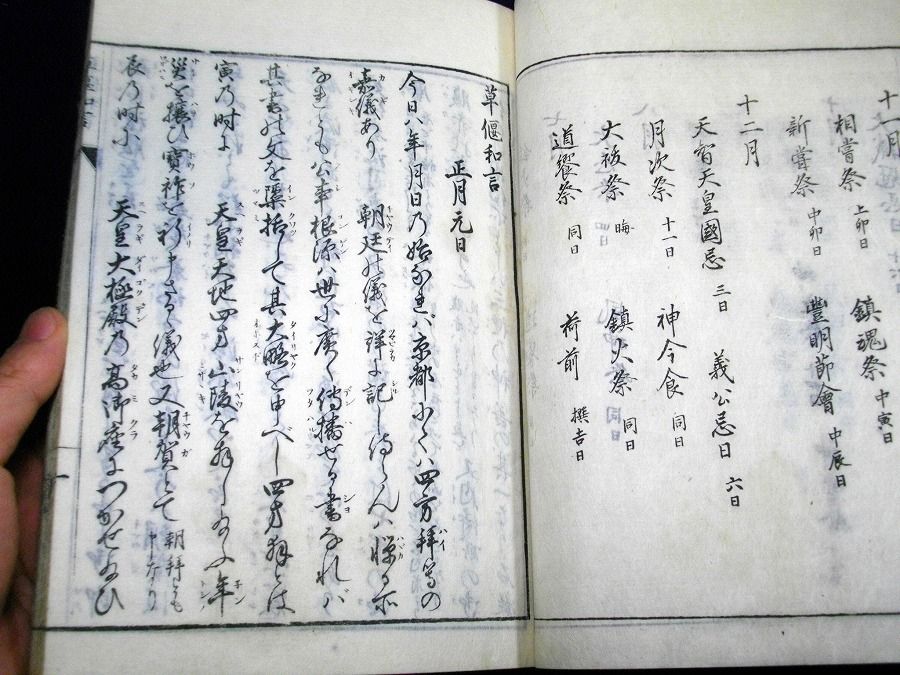 十一月
相嘗祭 上卯日 鎮魂祭 中寅日
新嘗祭 中卯日 豐明節會 中辰日
十二月
天智天皇國忌 三日 義公忌日 六日
月次祭 十一日 神今食 同日
大祓祭 晦 鎮火祭 同日
道饗祭 同日 荷前 撰吉日
草偃和言
正月元日
今日ハ年月日の始なれバ京都にてハ四方拜等の
嘉儀あり 朝廷の儀を詳に記し侍らんハ憚る所
なれども公事根源ハ世に廣く傳播せる書なれバ
其書の文を檃括して其大略を申べし四方拜とは
寅の時に 天皇天地四方山陵を拜し給ふ年
災を攘ひ寶祚を祈申さるゝ儀也又朝賀とて 朝拜とも申なり
辰の時に 天皇大極殿の高御座につかせ給ひ